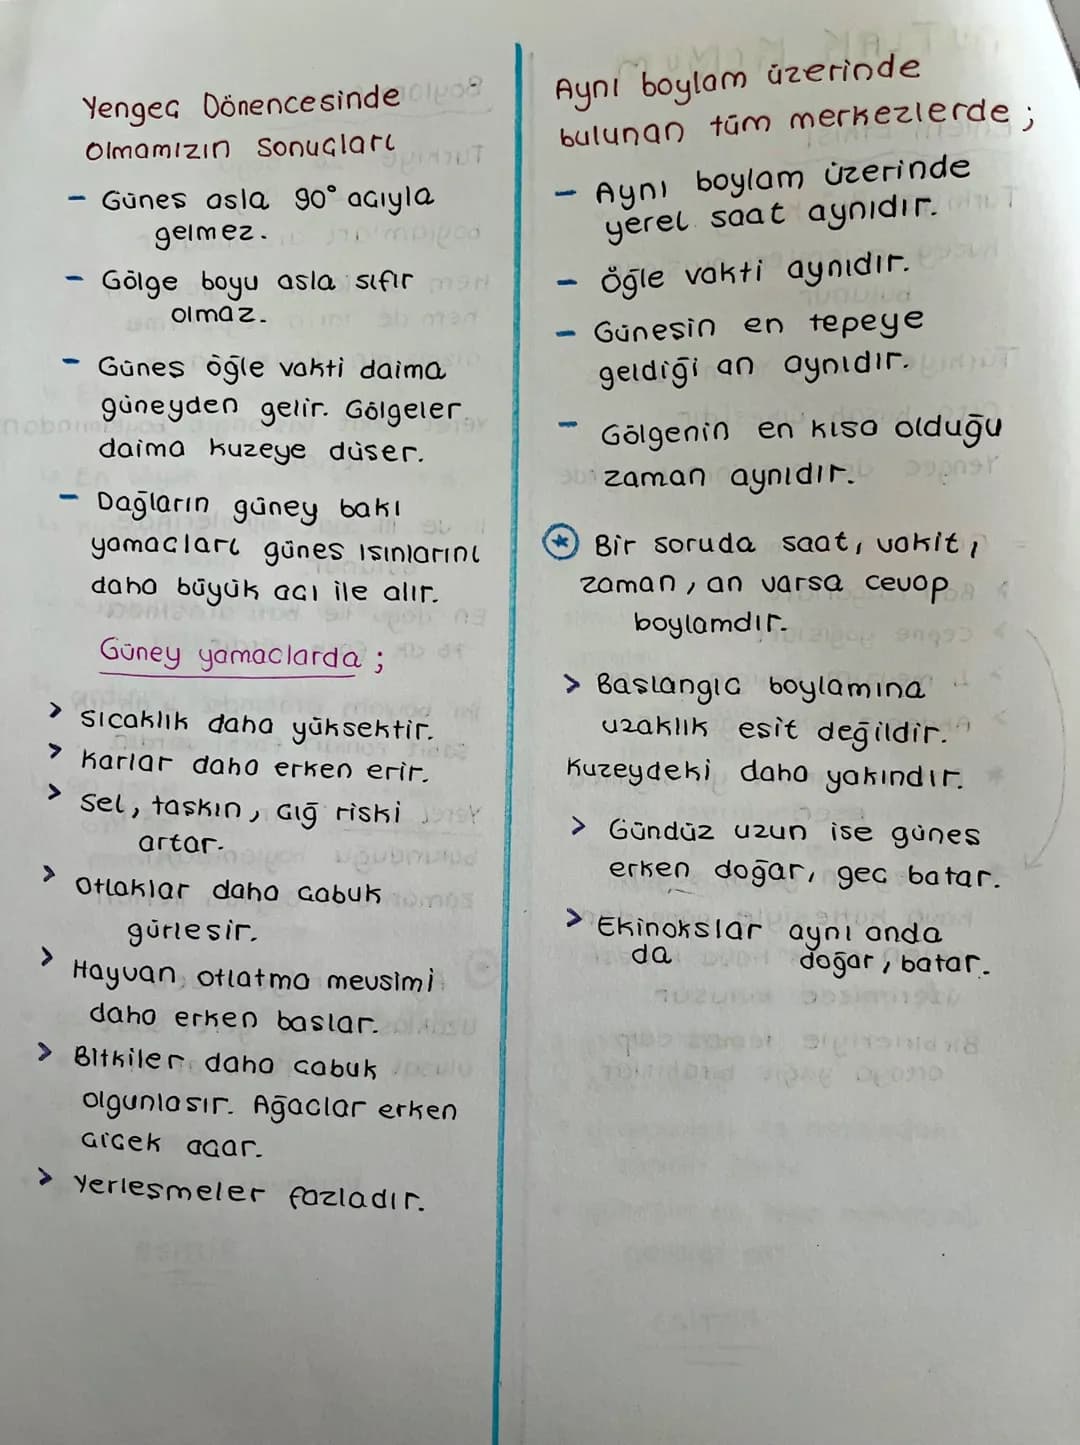 Yengeç Dönencesinde
Olmamızın Sonuçları
- Güneş asla 90° açıyla
gelmez.
- Gölge boyu asla sıfır
olmaz.
- Güneş öğle vakti daima
güneyden gelir. Gölgeler
daima kuzeye düşer.
- Dağların güney bakı
yamaçları güneş ışınlarını
daha büyük açı ile alır.
Güney yamaçlarda ;
> Sıcaklık daha yüksektir.
> Karlar daha erken erir.
> Sel, taşkın, çığ riski
artar.
> Otlaklar daha çabuk
gürleşir.
> Hayvan otlatma mevsimi
daha erken başlar.
> Bitkiler daha çabuk
olgunlaşır. Ağaçlar erken
çiçek açar.
> Yerleşmeler fazladır.
Aynı boylam üzerinde
bulunan tüm merkezlerde ;
- Aynı boylam üzerinde
yerel saat aynıdır.
- Öğle vakti aynıdır.
- Güneşin en tepeye
geldiği an aynıdır.
- Gölgenin en kısa olduğu
zaman aynıdır.
* Bir soruda saat, vakit,
zaman, an varsa cevap
boylamdır.
> Başlangıç boylamına
uzaklık eşit değildir.
Kuzeydeki daha yakındır.
> Gündüz uzun ise güneş
erken doğar, geç batar.
> Ekinokslar aynı anda
da doğar, batar.